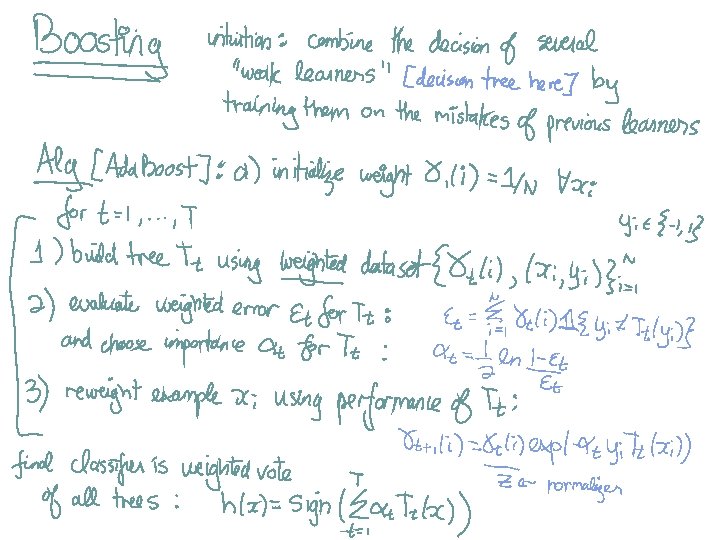 Boosting
intuition: combine the decision of several
"weak learners" [decision tree here] by
training them on the mistakes of previous learners
Alg [AdaBoost]: 0) initialize weight γ₁(i) = 1/N ∀xᵢ
for t=1, ..., T
yᵢ ∈ {-1,1}
1) build tree Tₜ using weighted dataset {γₜ(i), (xᵢ, yᵢ)}ᵢ₌₁ᴺ
2) evaluate weighted error εₜ for Tₜ: εₜ = Σᵢ₌₁ᴺ γₜ(i) 1{yᵢ ≠ Tₜ(yᵢ)}
and choose importance αₜ for Tₜ: αₜ = 1/2 ln (1-εₜ)/εₜ
3) reweight example xᵢ using performance of Tₜ:
γₜ₊₁(i) = γₜ(i) exp(-αₜ yᵢ Tₜ(xᵢ))
Z ← normalizer
final classifier is weighted vote
of all trees: h(x) = sign(Σₜ₌₁ᵀ αₜ Tₜ(x))